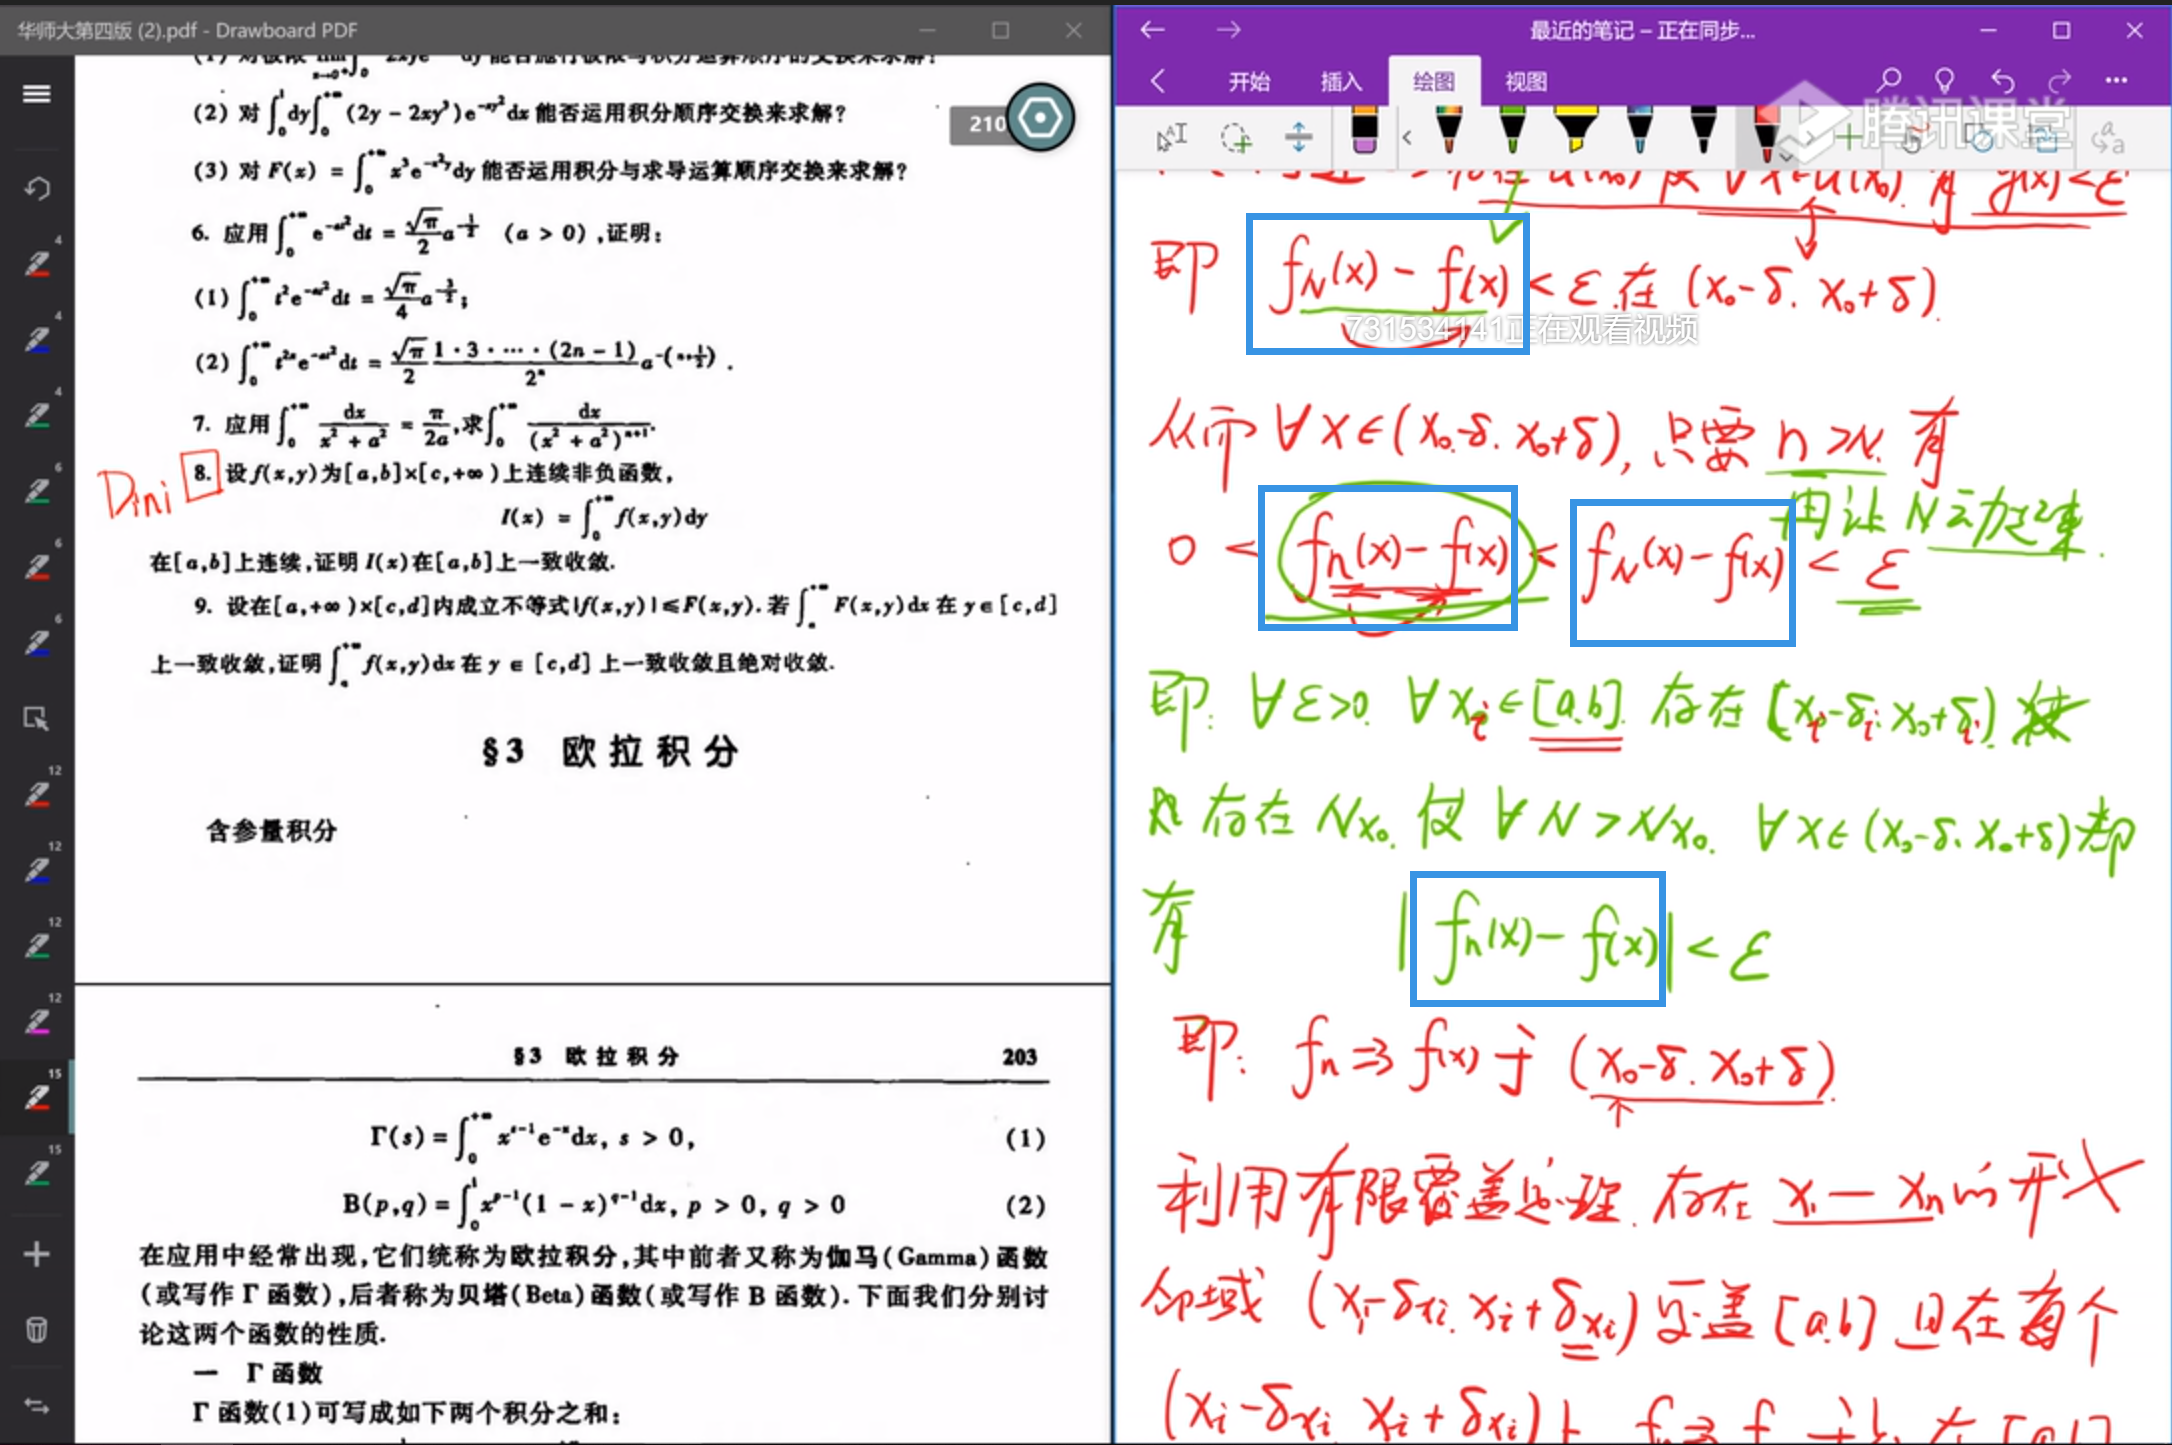 华师大第四版 (2).pdf - Drawboard PDF
(2) 对 ∫₀¹dy∫₀^{+∞} (2y − 2xy³)e^{−xy²}dx 能否运用积分顺序交换来求解?
210
(3) 对 F(x) = ∫₀^{+∞} x³e^{−x²y}dy 能否运用积分与求导运算顺序交换来求解?
6. 应用 ∫₀^{+∞} e^{−at²}dt = (√π/2) a^{−1/2} (a > 0),证明:
(1) ∫₀^{+∞} t²e^{−at²}dt = (√π/4) a^{−3/2};
(2) ∫₀^{+∞} t^{2n}e^{−at²}dt = (√π/2) (1·3·⋯·(2n − 1)/2ⁿ) a^{−(n+1/2)}.
7. 应用 ∫₀^{+∞} dx/(x² + a²) = π/2a,求 ∫₀^{+∞} dx/(x² + a²)^{n+1}.
Dini 8. 设 f(x,y) 为[a,b]×[c,+∞)上连续非负函数,
I(x) = ∫₀^{+∞} f(x,y)dy
在[a,b]上连续,证明 I(x)在[a,b]上一致收敛.
9. 设在[a,+∞)×[c,d]内成立不等式|f(x,y)|≤F(x,y).若 ∫ₐ^{+∞} F(x,y)dx 在 y∈[c,d]
上一致收敛,证明 ∫ₐ^{+∞} f(x,y)dx 在 y∈[c,d] 上一致收敛且绝对收敛.
§3 欧拉积分
含参量积分
§3 欧拉积分 203
Γ(s) = ∫₀^{+∞} x^{s−1}e^{−x}dx, s > 0, (1)
B(p,q) = ∫₀¹ x^{p−1}(1 − x)^{q−1}dx, p > 0, q > 0 (2)
在应用中经常出现,它们统称为欧拉积分,其中前者又称为伽马(Gamma)函数
(或写作 Γ 函数),后者称为贝塔(Beta)函数(或写作 B 函数).下面我们分别讨
论这两个函数的性质.
一 Γ 函数
Γ 函数(1)可写成如下两个积分之和:
4
4
4
6
6
6
12
12
12
12
15
15
最近的笔记 – 正在同步...
开始 插入 绘图 视图
腾讯课堂
∀x∈U(x₀) 有 g(x)<ε
即 f_N(x) − f(x) < ε 在 (x₀−δ. x₀+δ).
731534141正在观看视频
从而 ∀x∈(x₀−δ. x₀+δ), 只要 n>N. 有
再让 N 动起来.
0 < f_n(x) − f(x) < f_N(x) − f(x) < ε
即: ∀ε>0. ∀x_i∈[a.b]. 存在 (x_i−δ_i. x₀+δ_i)
存在 N_{x₀}. 使 ∀N>N_{x₀}. ∀x∈(x₀−δ. x₀+δ)都
有 |f_n(x) − f(x)| < ε
即: f_n ⇉ f(x) 于 (x₀−δ. x₀+δ).
利用有限覆盖定理. 存在 x₁ — x_n 的开
邻域 (x_i−δ_{xi}. x_i+δ_{xi}) 覆盖 [a.b] 且在每个
(x_i−δ_{xi} x_i+δ_{xi}) 上 f_n ⇉ f